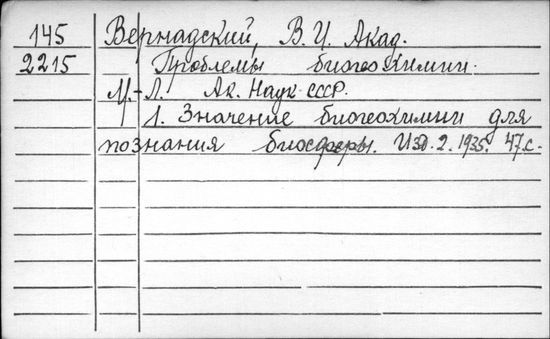 145 Вернадский, В. И. Акад.
2215 Проблемы биогеохимии.
М.-Л. Ак. Наук СССР.
1. Значение биогеохимии для
познания биосферы. Изд. 2. 1935. 47 с.